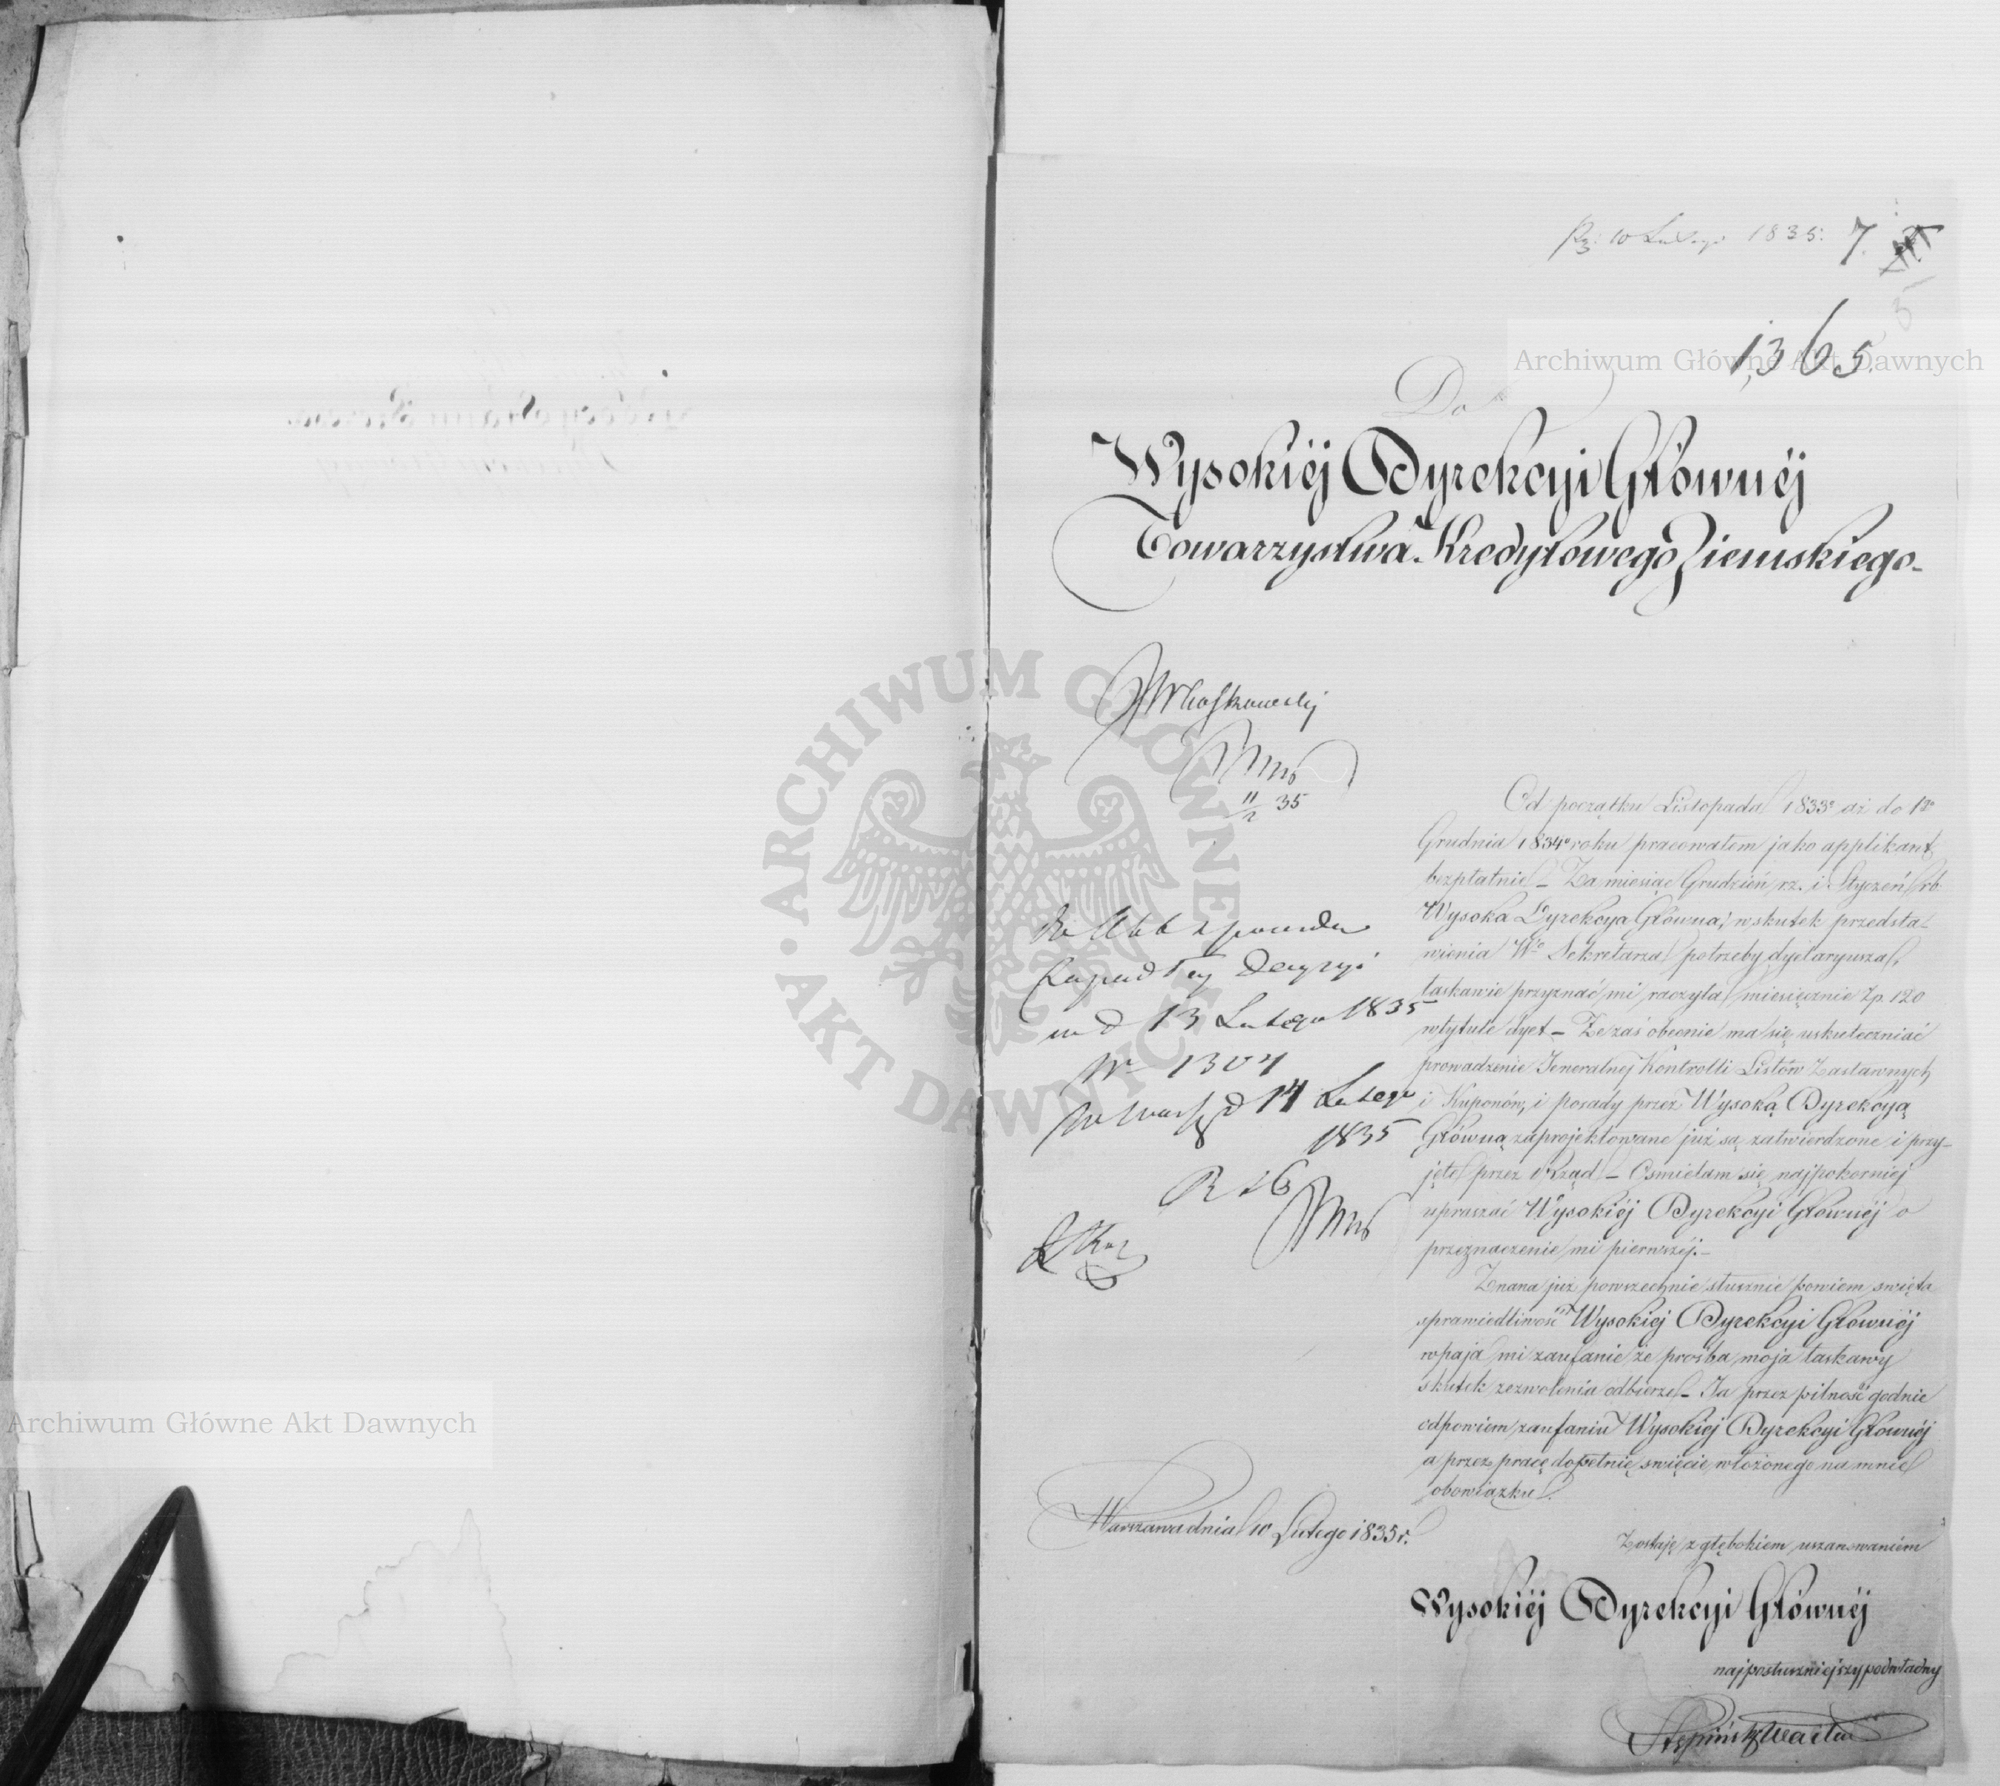 10 Lutego 1835. 7.
5
1,365.
Do
Wysokiéj Dyrekcyi Głównéj
Towarzystwa Kredytowego Ziemskiego.
11/2 35
Decyzyi
d 13 Lutego 1835
Nr 1304
d 14 Lutego
1835
Od początku Listopada 1833° aż do 1go
Grudnia 1834° roku pracowałem jako applikant
bezpłatnie – Za miesiąc Grudzień rz. i Styczeń rb
Wysoka Dyrekcya Główna, wskutek przedsta-
wienia Wo Sekretarza potrzeby dyetaryusza,
łaskawie przyznać mi raczyła miesięcznie Zp. 120
wtytule dyet – Że zaś obecnie ma się uskuteczniać
prowadzenie Jeneralnej Kontrolli Listów Zastawnych
i Kuponów, i posady przez Wysoką Dyrekcyą
Główną zaprojektowane już są zatwierdzone i przy-
jęte przez Rząd – Ośmielam się najpokorniej
upraszać Wysokiéj Dyrekcyi Głównéj o
przeznaczenie mi pierwszéj. –
Znana już powszechnie słusznie powiem święta
sprawiedliwość Wysokiej Dyrekcyi Głównéj
wpaja mi zaufanie że prośba moja łaskawy
skutek zezwolenia odbierze – Ja przez pilność godnie
odpowiem zaufaniu Wysokiej Dyrekcyi Głównéj
a przez pracę dopełnię święcie włożonego na mnie
obowiązku.
Warszawa dnia 10 Lutego 1835 r.
Zostaję z głębokiem uszanowaniem
Wysokiéj Dyrekcyi Głównéj
najposłuszniejszy podwładny
Archiwum Główne Akt Dawnych
Archiwum Główne Akt Dawnych
ARCHIWUM GŁÓWNE AKT DAWNYCH